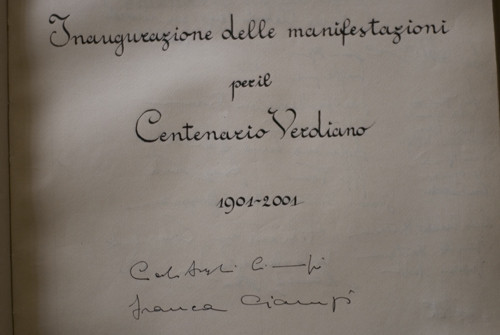 Inaugurazione delle manifestazioni
per il
Centenario Verdiano
1901-2001
Carlo Azeglio Ciampi
Franca Ciampi